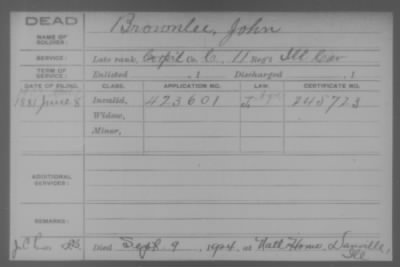 DEAD
NAME OF SOLDIER: Brownlee, John
SERVICE: Late rank, Corp'l Co. C, 11 Reg't Ill Cav
TERM OF SERVICE: Enlisted , 1 Discharged , 1
DATE OF FILING. CLASS. APPLICATION NO. LAW. CERTIFICATE NO.
1881 June 8 Invalid, 423601 245723
Widow,
Minor,
ADDITIONAL SERVICES:
REMARKS:
Died Sept 9, 1904, at Natl. Home, Danville, Ill